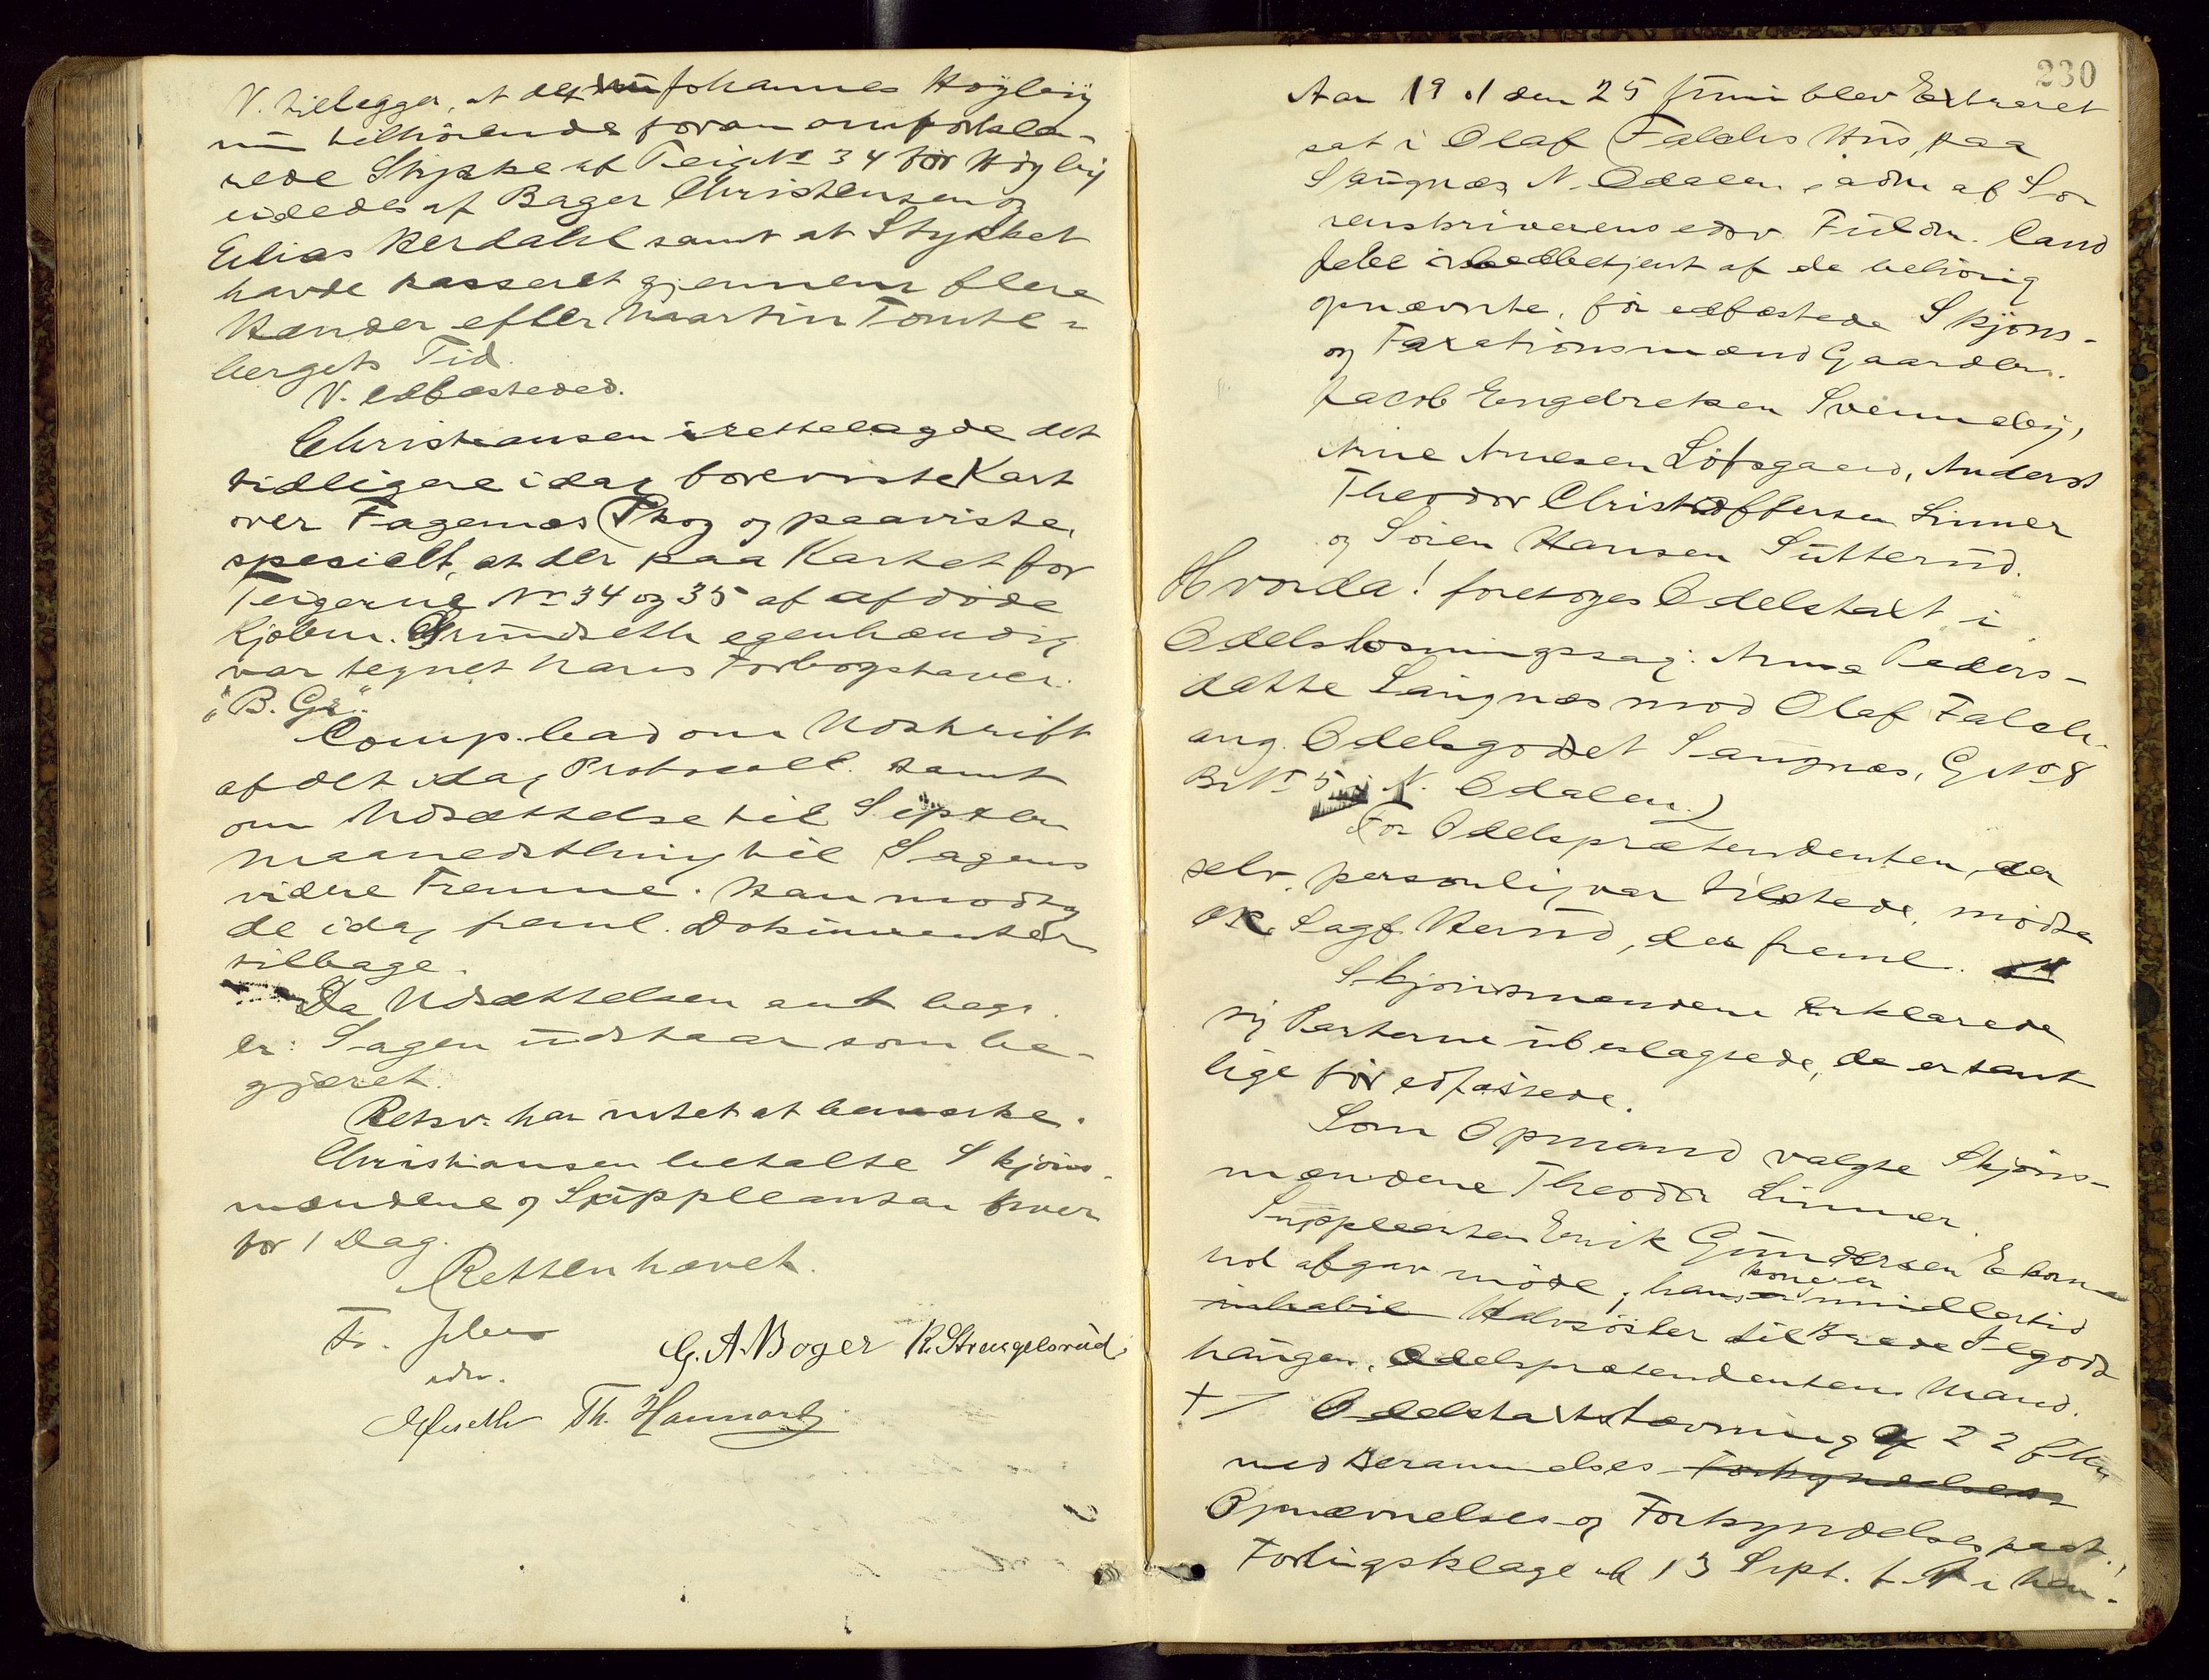 V. tillegger, at det Johannes Høyby
nu tilhørende foran omforkla-
rede Stykke af Teig No 34 før Høyby
eiedes af Bager Christensen og
Elias Berdahl samt at Stykket
havde passeret gjennem flere
Hænder efter Martin Tomte-
bergets Tid.
V. edfæstedes.
Christiansen irettelagde det
tidligere idag foreviste Kart
over Fagernes Skog og paaviste,
specielt, at der paa Kartet for
Teigerne No 34 og 35 af afdøde
Kjøbm. Grundseth egenhændig
var tegnet hans Forbogstaver:
"B. Gr."
Comp. bad om Udskrift
af det idag Protocoll. samt
om Udsættelse til Septbr
Maanedsthing til Sagens
videre Fremme. Han modtog
de idag freml. Dokumenter
tilbage.
Da Udsættelsen ant. begr.
er: Sagen udstaar som be-
gjæret.
Retsv. har intet at bemærke.
Christiansen betalte Skjøns-
mændene og Suppleanten hver
for 1 Dag.
Retten hævet.
Fr. Jebe
edsv.
G. A. Boger R. Strengelsrud.
Th. Hammar
230
Aar 1901 den 25 Juni blev Extraret
sat i Olaf Falchs Hus paa
Saugnæs N. Odalen, adm af So-
renskriverens edsv. Fuldm. Cand
Jebe og betjent af de behørig
opnævnte, før edfæstede Skjøns-
og Taxationsmænd Gaardbr.
Jacob Engebretsen Svenneby,
Arne Arnesen Løfsgaard, Anders
Theodor Christoffersen Linner
og Søren Hansen Sutterud.
Hvorda! foretoges Odelstaxt i
Odelsløsningssag: Anna Peders-
datter Saugnæs mod Olaf Falch
ang. Odelsgodset Saugnæs, G No 8
Br No 5 i N. Odalen.)
For Odelsprætendenten, der
selv personlig var tilstede, mødte
O.R. Sagf. Kerud, der freml.
Skjønsmændene erklærede
sig Parterne ubeslagtede, de er samt-
lige før edfæstede.
Som Opmand valgte Skjøns-
mændene Theodor Linner.
Suppleanten Erik Gundersen Ekorn-
hol afgav møde; hans kone er imidlertid
inhabil Halvsøster til
haugen, Odelsprætendentens Mand.
+/ Odelstaxtstævning af 22 f. M.
med Berammelses Forkyndelses
Opnævnelses og Forkyndelsespaat.,
Forligsklage af 13 Sept. f. A. i hen-